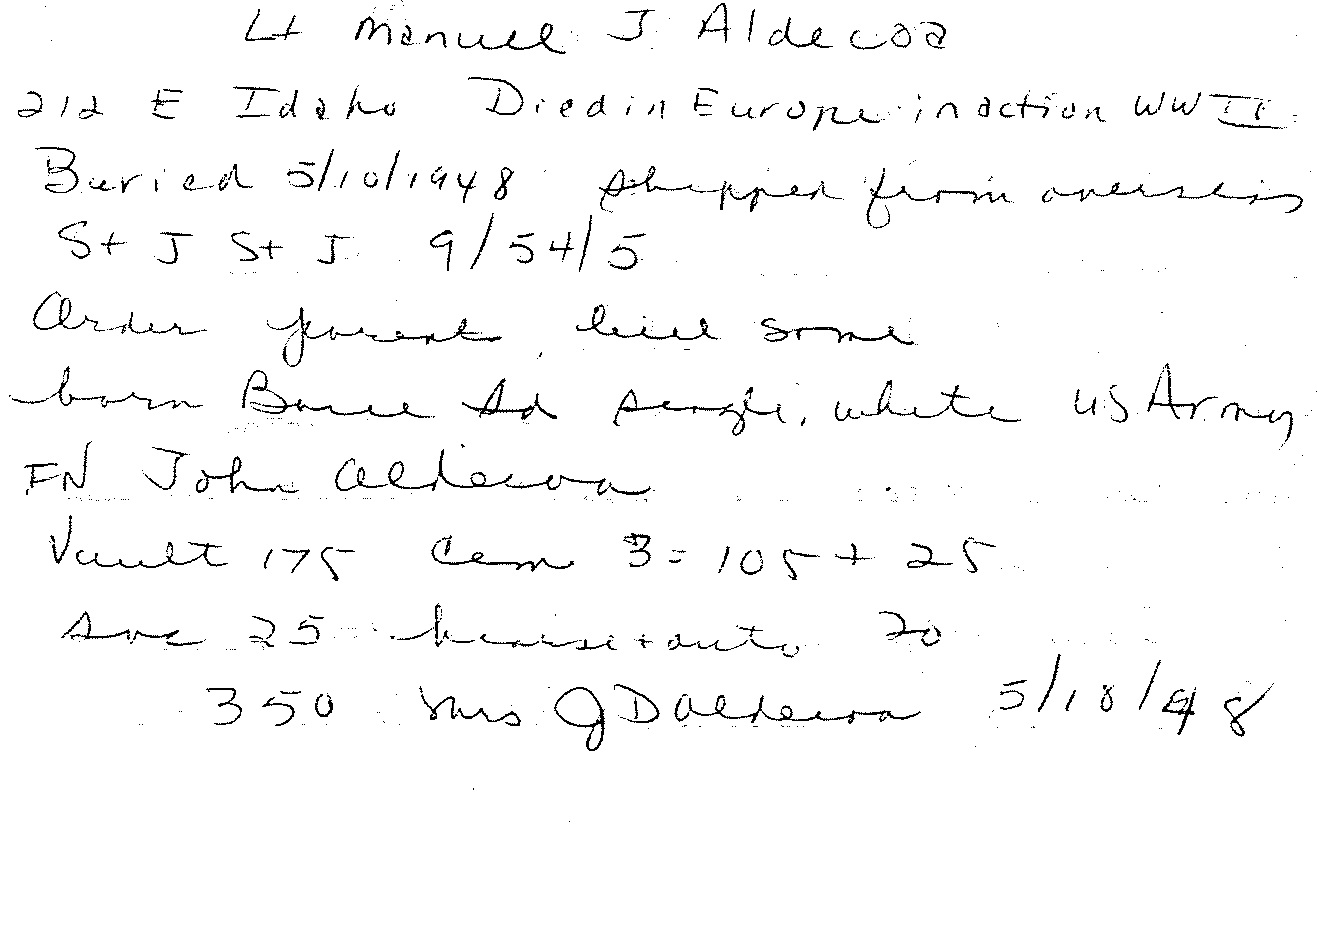 Lt Manuel J Aldecoa
212 E Idaho Died in Europe in action WW II
Buried 5/10/1948 shipped from overseas
St J St J 9/54/5
Order parent, bill same
born Boise Id single, white US Army
FN John Aldecoa
Vault 175 Cem 3 = 105 + 25
Svc 25 hearse + auto 20
350 Mrs J D Aldecoa 5/10/48